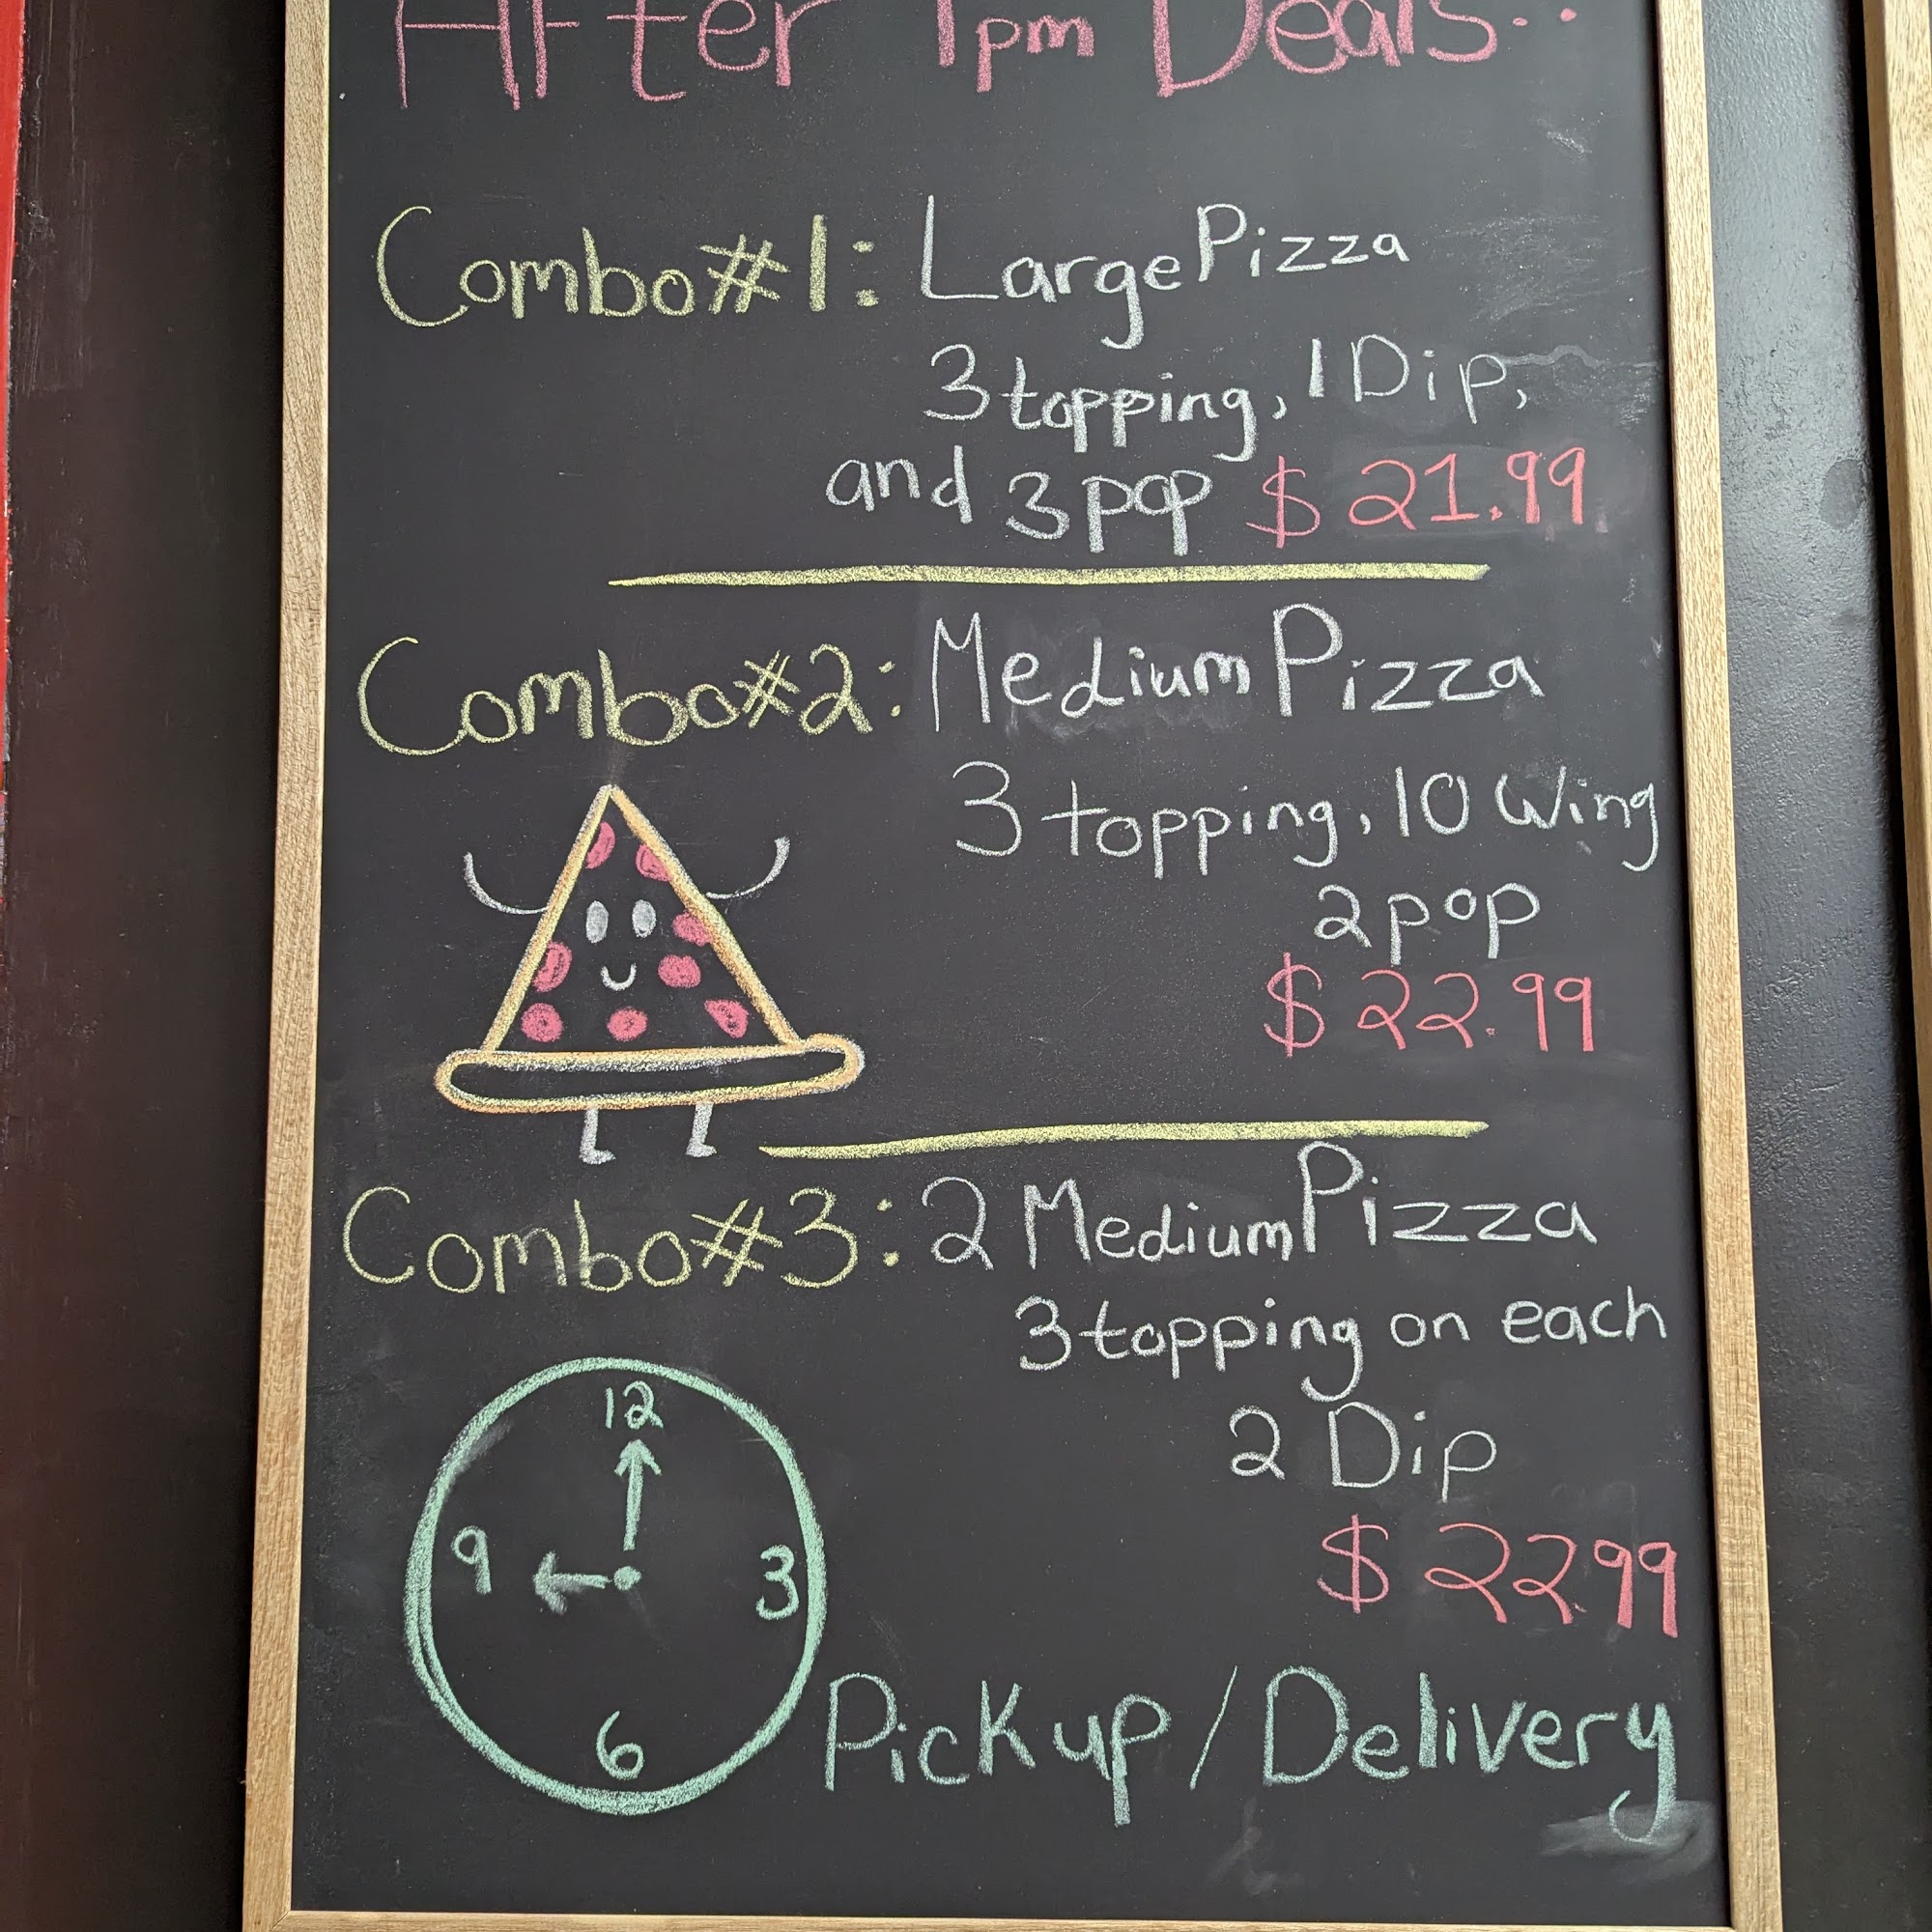 After 1pm Deals..
Combo#1: Large Pizza
3 topping, 1 Dip,
and 3 pop $21.99
Combo#2: Medium Pizza
3 topping, 10 Wing
2 pop
$22.99
Combo#3: 2 Medium Pizza
3 topping on each
2 Dip
$22.99
12
9 3
6
Pickup/Delivery